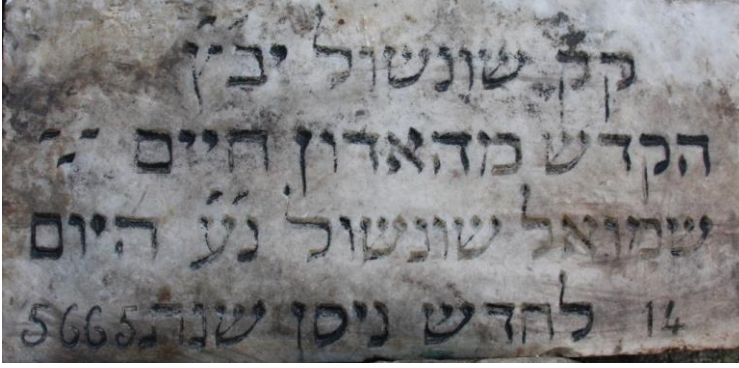 קק שונשול יב״ץ
הקדש מהאדון חיים
שמואל שונשול נ״ע היום
14 לחדש ניסן שנת 5665